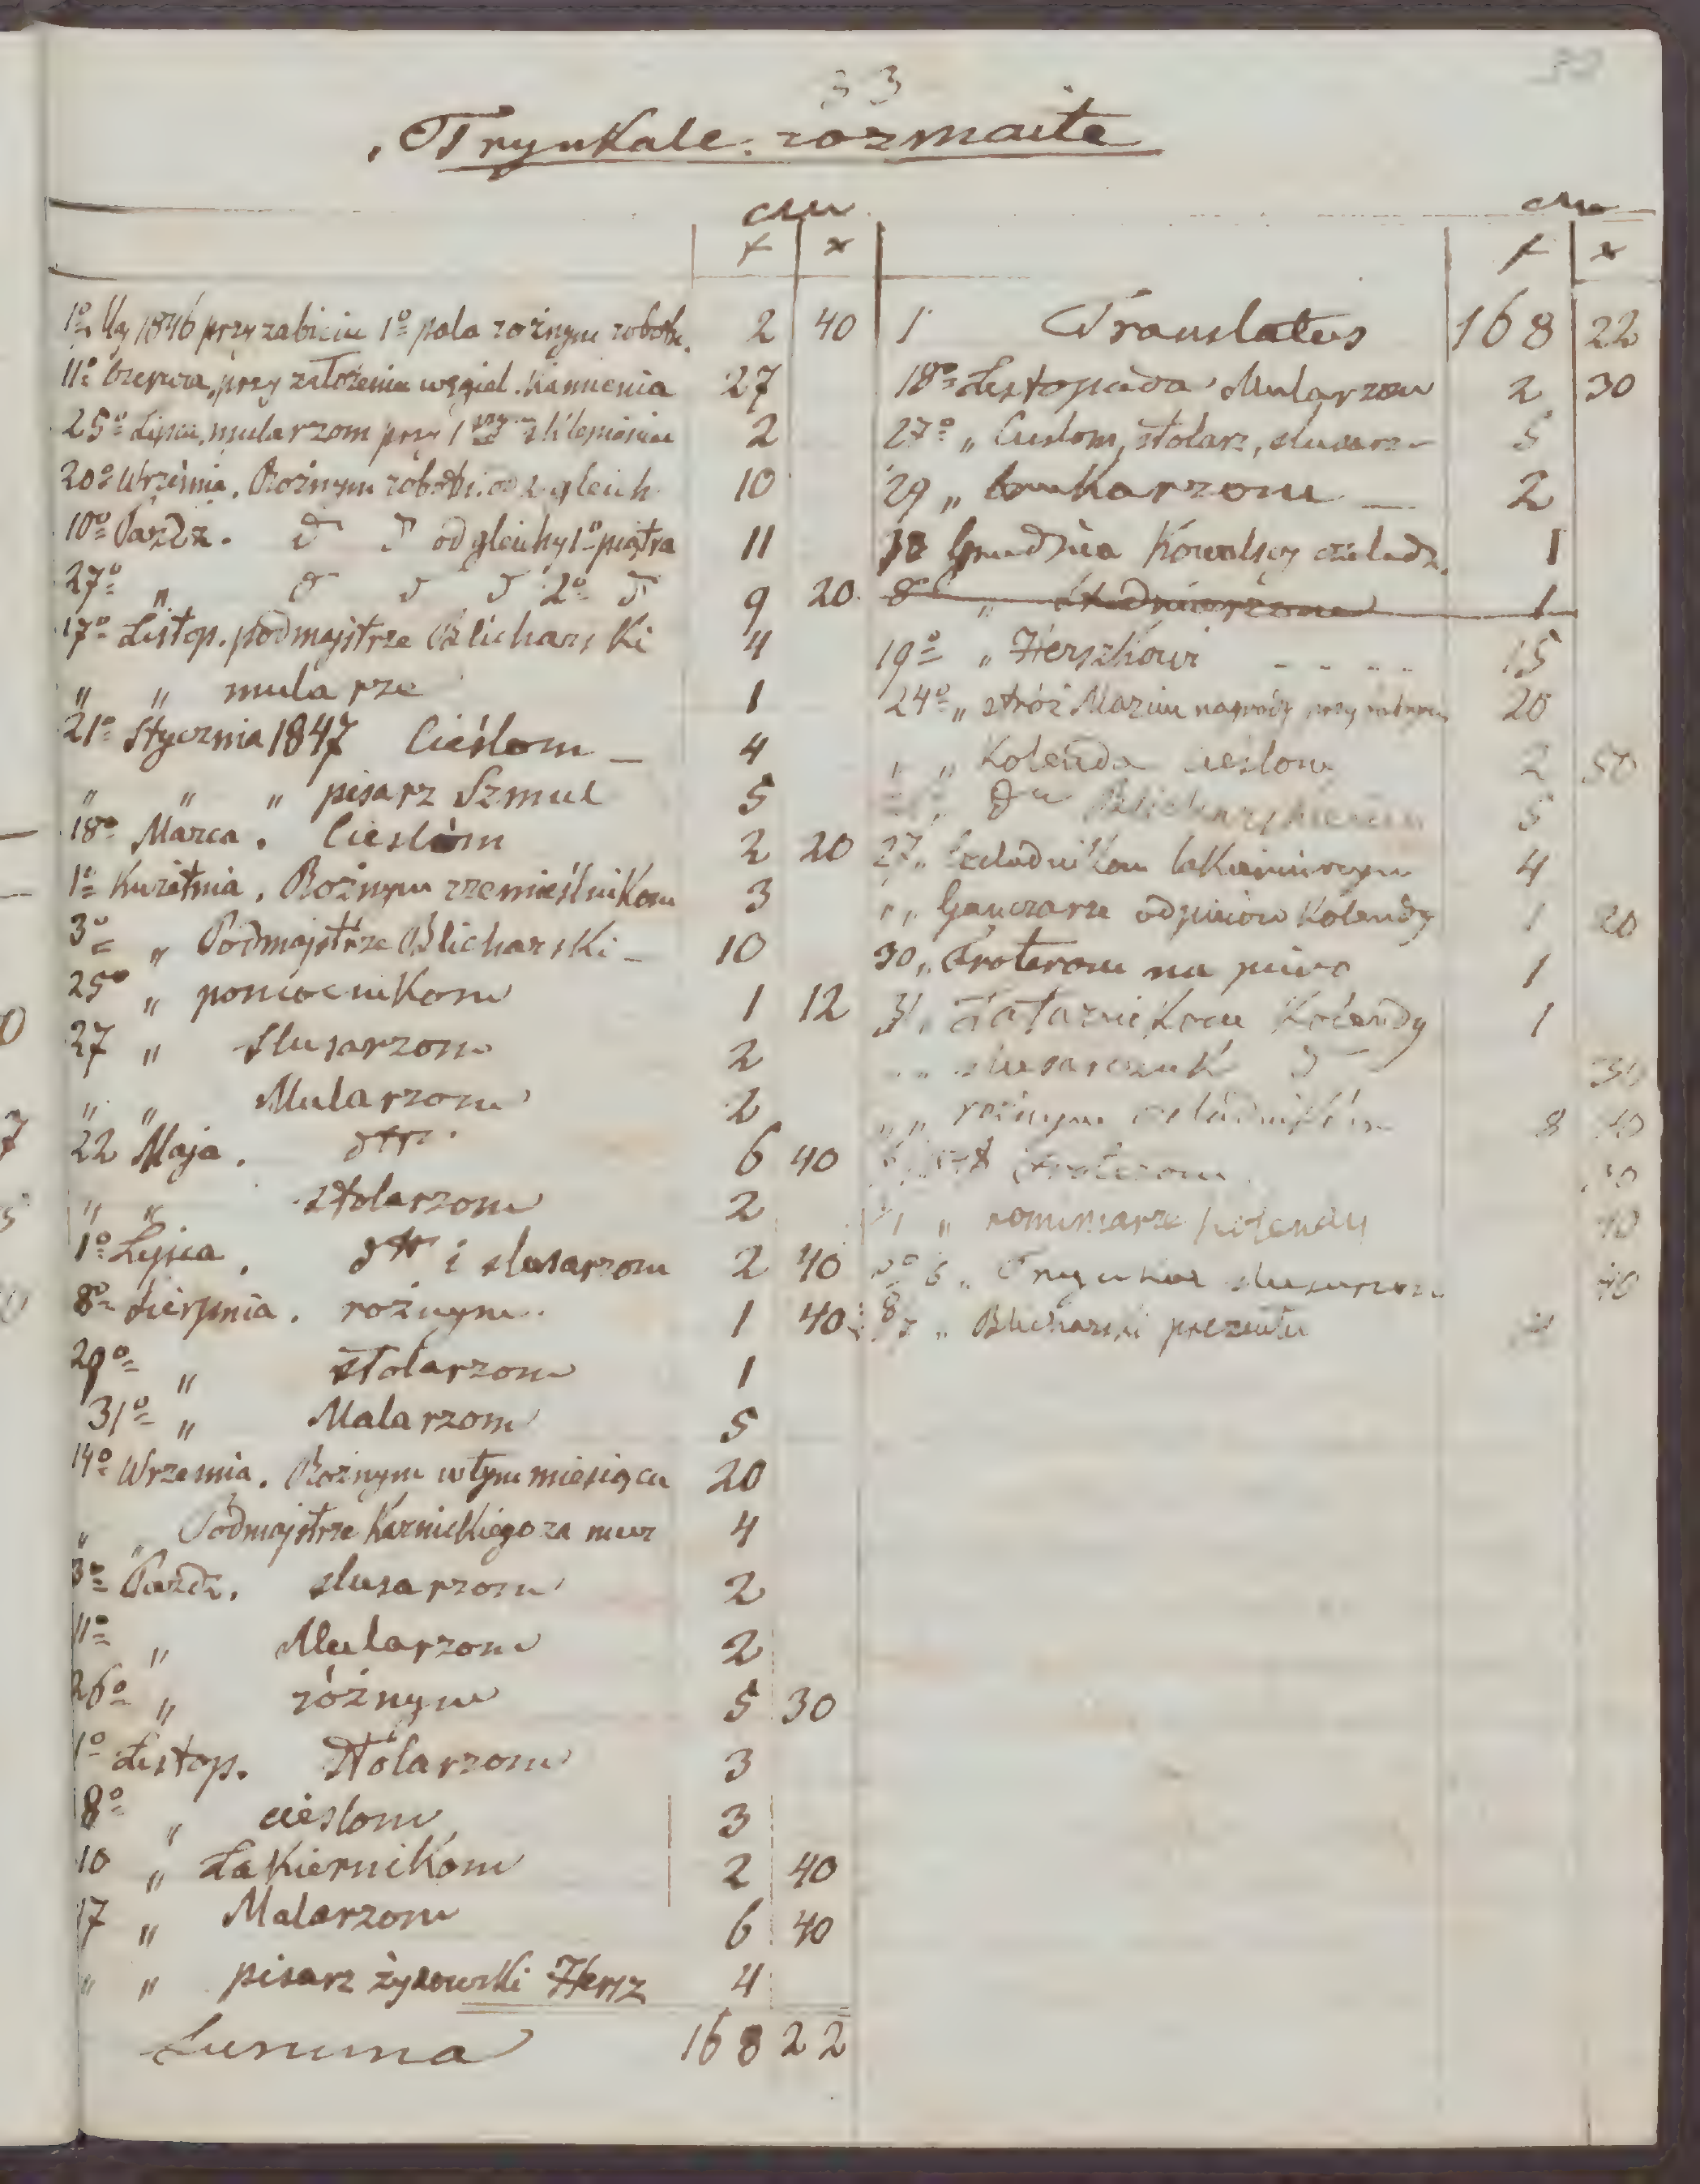 33
Trynkale rozmaite
CM
f x
1º May 1846 przy zabiciu 1º pala rożnym robotn. 2 40
11º Czerwca, przy założeniu węgiel. kamienia 27
25º Lipca, mularzom przy 1 sklepieniu 2
20º Wrześnią. Rożnym robotn. od gleich 10
10º Paźdz. d d od gleichy 1º piątra 11
27º " d d d 2º d 9 20
17º Listop. podmajstrze Blicharski 4
" " mularze 1
21º Stycznia 1847 Cieślom 4
" " " pisarz Szmul 5
18º Marca. Cieslom 2 20
1º Kwietnia. Rożnym rzemieślnikom 3
3º " Podmajstrze Blicharski 10
25º " pomocnikom 1 12
27 " slusarzom 2
" " Mularzom 2
22 Maja. dtto 6 40
" " stolarzom 2
1º Lipca. dtto i slusarzom 2 40
8º Sierpnia. rożnym 1 40
29º " stolarzom 1
31º " Malarzom 5
14º Wrzesnia. Rożnym w tym miesiącu 20
" " Podmajstrze Karnickiego za mur 4
3º Pazdz. slusarzom 2
11º " Mularzom 2
26º " różnym 5 30
1º Listop. Stolarzom 3
8º " cieslom 3
10 " Lakiernikom 2 40
17 " Malarzom 6 40
" " pisarz żydowski Hersz 4
Summa 168 22
CM
f x
1 Translatus 168 22
18º Listopada Mularzom 2 30
27º " Cieslom, stolarz, slusarz 5
29 " Brukarzom 2
18 Grudnia Kowalscy czeladz. 1
8º " studniarzom 1
19º " Herszkowi 15
24º " stróż Marcin nagrody przy 20
" " Kolenda cieslom 2 50
" " dto Blicharskiemu 5
27 " Czeladnikom lakierniczym 4
" " Ganczarze od pieców Kolendy 1 20
30 " Froterom na piwo 1
31 " Kolendy 1
" " slusarczuk d 30
" " roźnym czeladnikóm 8 40
Froterom 30
" kominiarze kolendy 40
6 " Trynkal slusarzom 40
8 " Blicharski prezentu